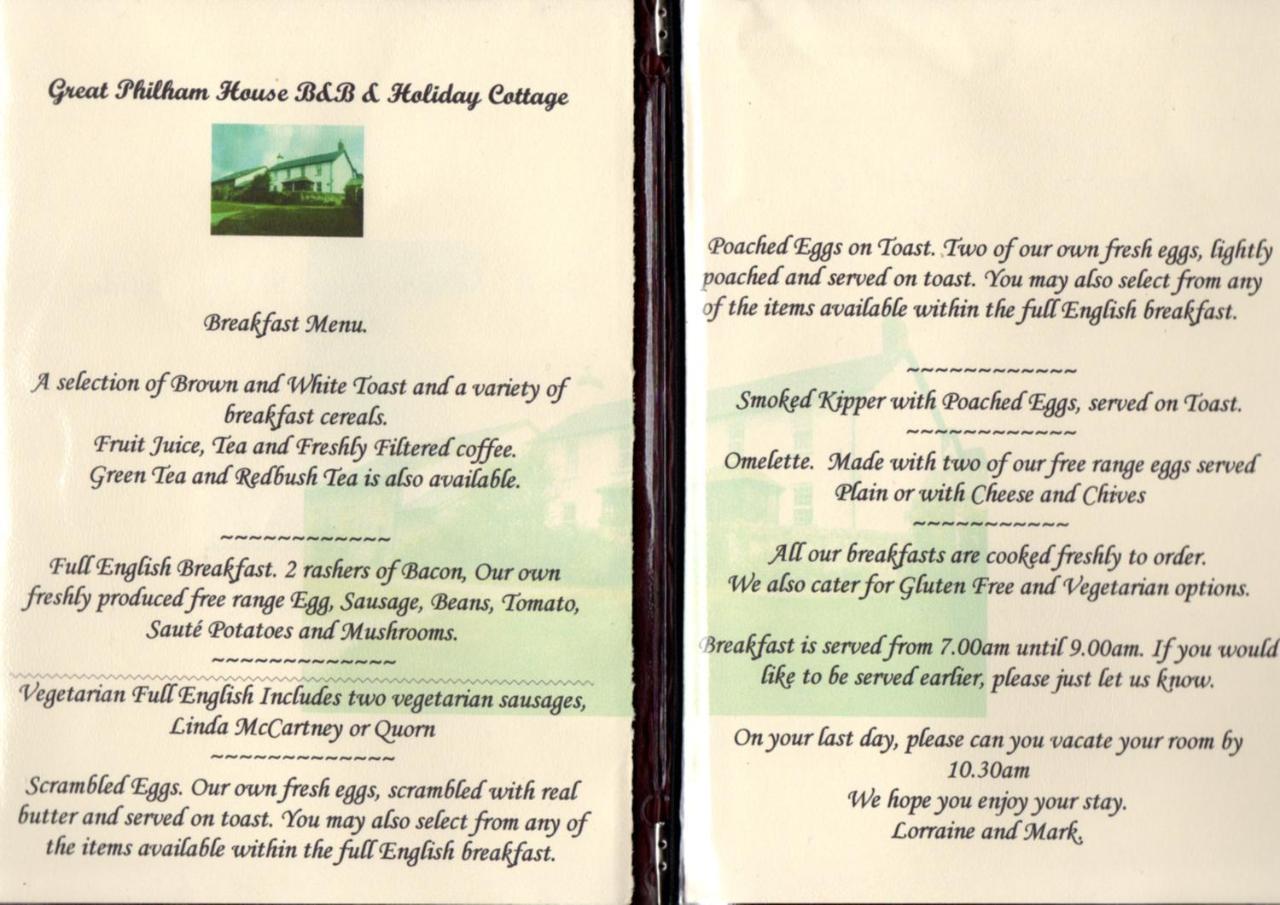 Great Philham House B&B & Holiday Cottage
Breakfast Menu.
A selection of Brown and White Toast and a variety of
breakfast cereals.
Fruit Juice, Tea and Freshly Filtered coffee.
Green Tea and Redbush Tea is also available.
~~~~~~~~~~~~
Full English Breakfast. 2 rashers of Bacon, Our own
freshly produced free range Egg, Sausage, Beans, Tomato,
Sauté Potatoes and Mushrooms.
~~~~~~~~~~~~~
Vegetarian Full English Includes two vegetarian sausages,
Linda McCartney or Quorn
~~~~~~~~~~~~~
Scrambled Eggs. Our own fresh eggs, scrambled with real
butter and served on toast. You may also select from any of
the items available within the full English breakfast.
Poached Eggs on Toast. Two of our own fresh eggs, lightly
poached and served on toast. You may also select from any
of the items available within the full English breakfast.
~~~~~~~~~~~~
Smoked Kipper with Poached Eggs, served on Toast.
~~~~~~~~~~~~
Omelette. Made with two of our free range eggs served
Plain or with Cheese and Chives
~~~~~~~~~~~
All our breakfasts are cooked freshly to order.
We also cater for Gluten Free and Vegetarian options.
Breakfast is served from 7.00am until 9.00am. If you would
like to be served earlier, please just let us know.
On your last day, please can you vacate your room by
10.30am
We hope you enjoy your stay.
Lorraine and Mark.